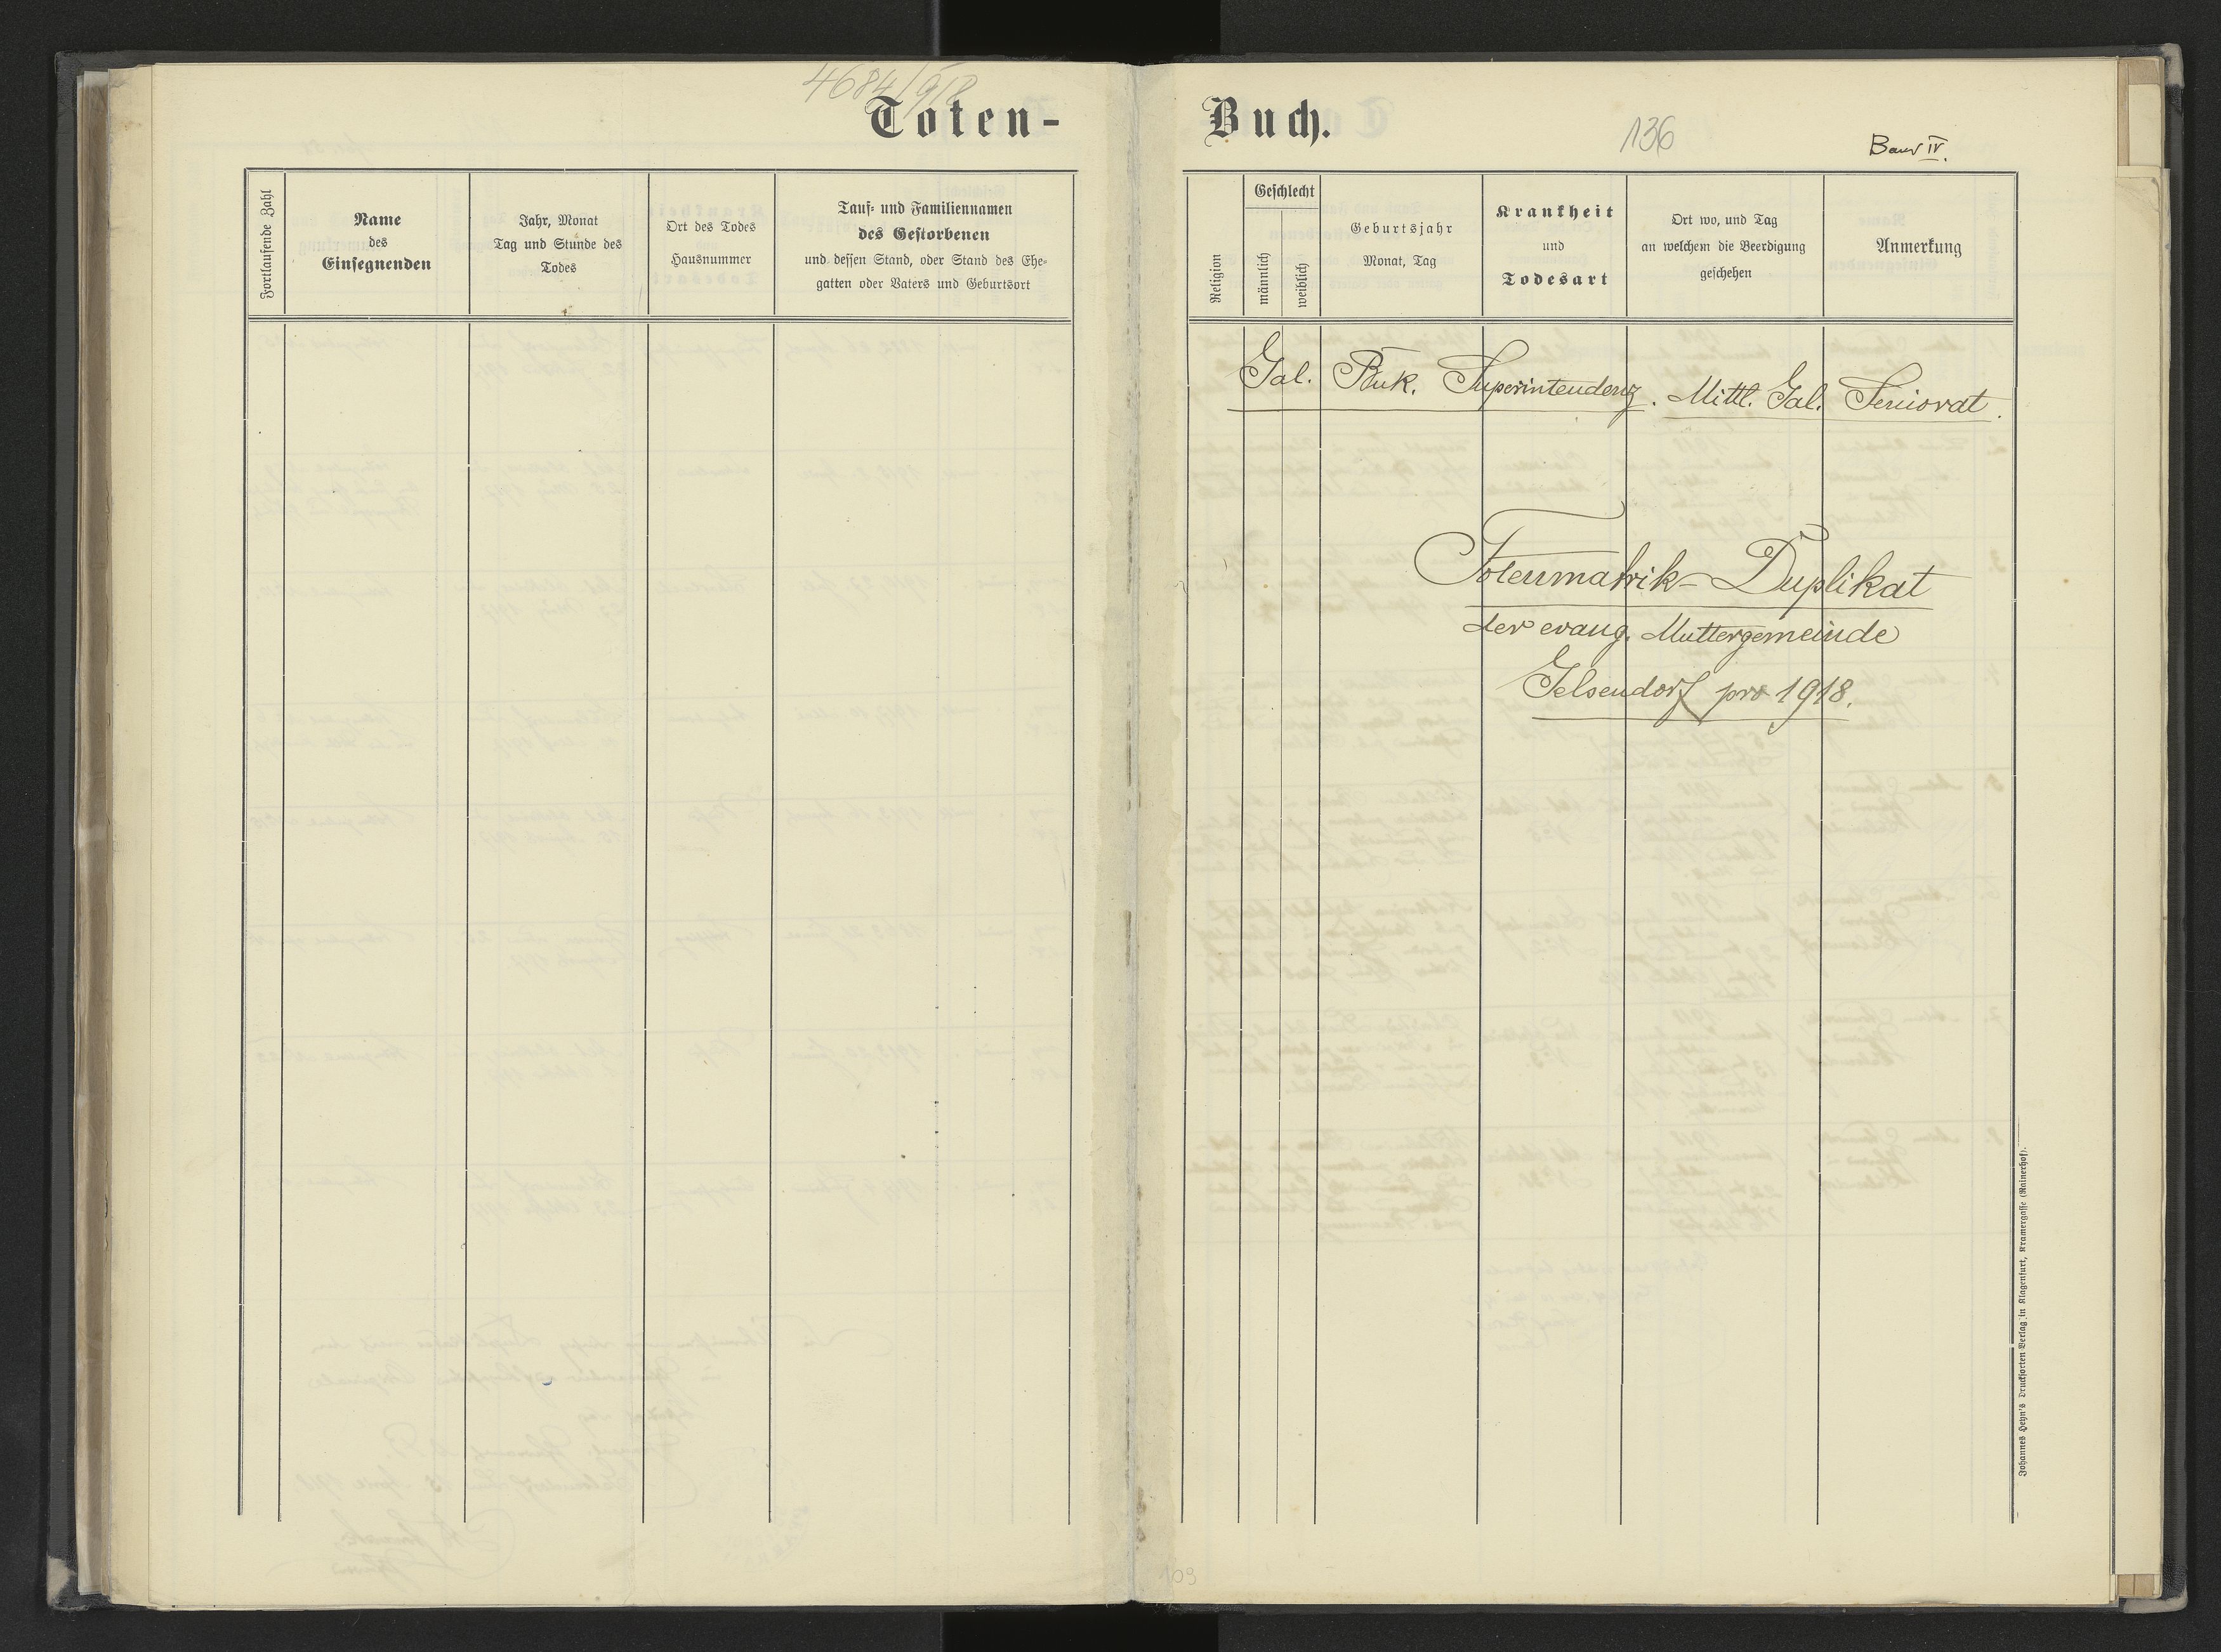 4684/918
Toten-
Fortlaufende Zahl
Name
des
Einsegnenden
Jahr, Monat
Tag und Stunde des
Todes
Ort des Todes
Hausnummer
Tauf- und Familiennamen
des Gestorbenen
und dessen Stand, oder Stand des Ehe-
gatten oder Vaters und Geburtsort
Buch.
136
Band IV.
Religion
Geschlecht
männlich
weiblich
Geburtsjahr
Monat, Tag
Krankheit
und
Todesart
Ort wo, und Tag
an welchem die Beerdigung
geschehen
Anmerkung
Gal. Buk. Superintendenz. Mittl. Gal. Seniorat.
Totenmatrik-Duplikat
der evang. Muttergemeinde
Gelsendorf pro 1918.
Johannes Heyn's Drucksorten-Verlag in Klagenfurt, Kramergasse (Rainerhof).
109